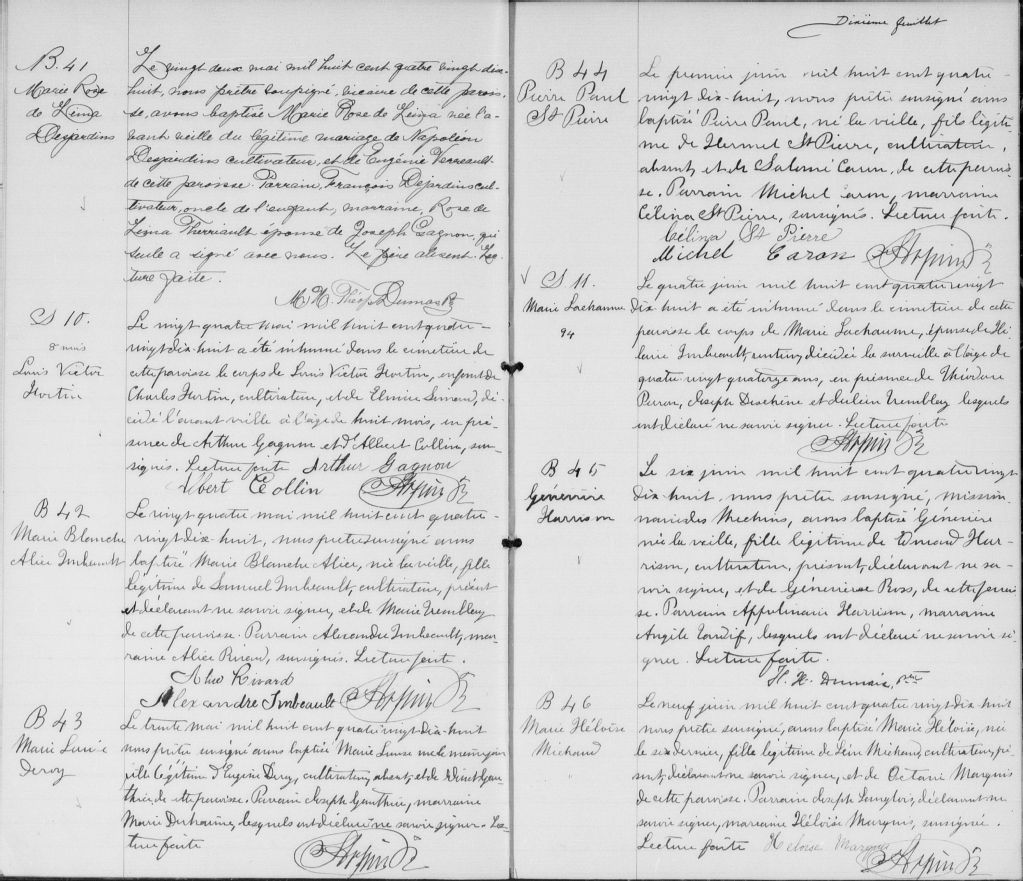 B. 41
Marie Rose
de Lima
Desjardins
Le vingt deux mai mil huit cent quatre vingt dix-
huit, nous prêtre soussigné, vicaire de cette parois-
se, avons baptisé Marie Rose de Lima née l'a-
vant veille du légitime mariage de Napoléon
Desjardins cultivateur, et de Eugénie Verreault
de cette paroisse. Parrain, François Desjardins cul-
tivateur, oncle de l'enfant, marraine, Rose de
Lima Therriault épouse de Joseph Gagnon, qui
seule a signé avec nous. Le père absent. Lec-
ture faite.
S 10.
8 mois
Louis Victor
Fortin
Le vingt quatre mai mil huit cent quatre-
vingt-dix-huit a été inhumé dans le cimetière de
cette paroisse le corps de Louis Victor Fortin, enfant de
Charles Fortin, cultivateur, et de Elmire Simard, dé-
cédé l'avant veille à l'âge de huit mois, en pré-
sence de Arthur Gagnon et d'Albert Collin, sous-
signés. Lecture faite Arthur Gagnon
Albert Collin
B 42
Marie Blanche
Alice Imbeault
Le vingt quatre mai mil huit cent quatre-
vingt-dix-huit, nous prêtre soussigné avons
baptisé Marie Blanche Alice, née la veille, fille
légitime de Samuel Imbeault, cultivateur, présent
et déclarant ne savoir signer, et de Marie Tremblay
de cette paroisse. Parrain Alexandre Imbeault, mar-
raine Alice Rivard, soussignés. Lecture faite.
Rivard
Alexandre Imbeault
B 43
Marie Louise
Deroy
Le trente mai mil huit cent quatre vingt-dix-huit
nous prêtre soussigné avons baptisé Marie Louise née le même jour
fille légitime d'Eugène Deroy, cultivateur, absent, et de Gau-
thier, de cette paroisse. Parrain Joseph Gauthier, marraine
Marie Duchaine, lesquels ont déclaré ne savoir signer. Lec-
ture faite
Dixième feuillet
B 44
Pierre Paul
St Pierre
Le premier juin mil huit cent quatre-
vingt dix-huit, nous prêtre soussigné avons
baptisé Pierre Paul, né la veille, fils légiti-
me de Hermel St Pierre, cultivateur,
absent, et de Salomé Caron, de cette parois-
se. Parrain Michel Caron, marraine
Célina St Pierre, soussignés. Lecture faite.
Célina St Pierre
Michel Caron
S 11.
Marie Lachaume
94
Le quatre juin mil huit cent quatre vingt
dix-huit a été inhumé dans le cimetière de cette
paroisse le corps de Marie Lachaume, épouse de Hi-
laire Imbeault, rentier, décédée la surveille à l'âge de
quatre vingt quatorze ans, en présence de Théodore
Perron, Joseph Deschêne et Tremblay lesquels
ont déclaré ne savoir signer. Lecture faite
B 45
Geneviève
Harrison
Le six juin mil huit cent quatre vingt
dix-huit, nous prêtre soussigné, mission-
naire des Méchins, avons baptisé Geneviève
née la veille, fille légitime de Edmond Har-
rison, cultivateur, présent, déclarant ne sa-
voir signer, et de Geneviève Ross, de cette parois-
se. Parrain Appolinaire Harrison, marraine
Angèle Tardif, lesquels ont déclaré ne savoir si-
gner. Lecture faite.
B 46
Marie Héloïse
Michaud
Le neuf juin mil huit cent quatre vingt dix huit
nous prêtre soussigné, avons baptisé Marie Héloïse, née
le six dernier, fille légitime de Léon Michaud, cultivateur, pré-
sent, déclarant ne savoir signer, et de Octavie Marquis
de cette paroisse. Parrain Joseph Langlois, déclarant ne
savoir signer, marraine Héloïse Marquis, soussignée.
Lecture faite Héloïse Marquis